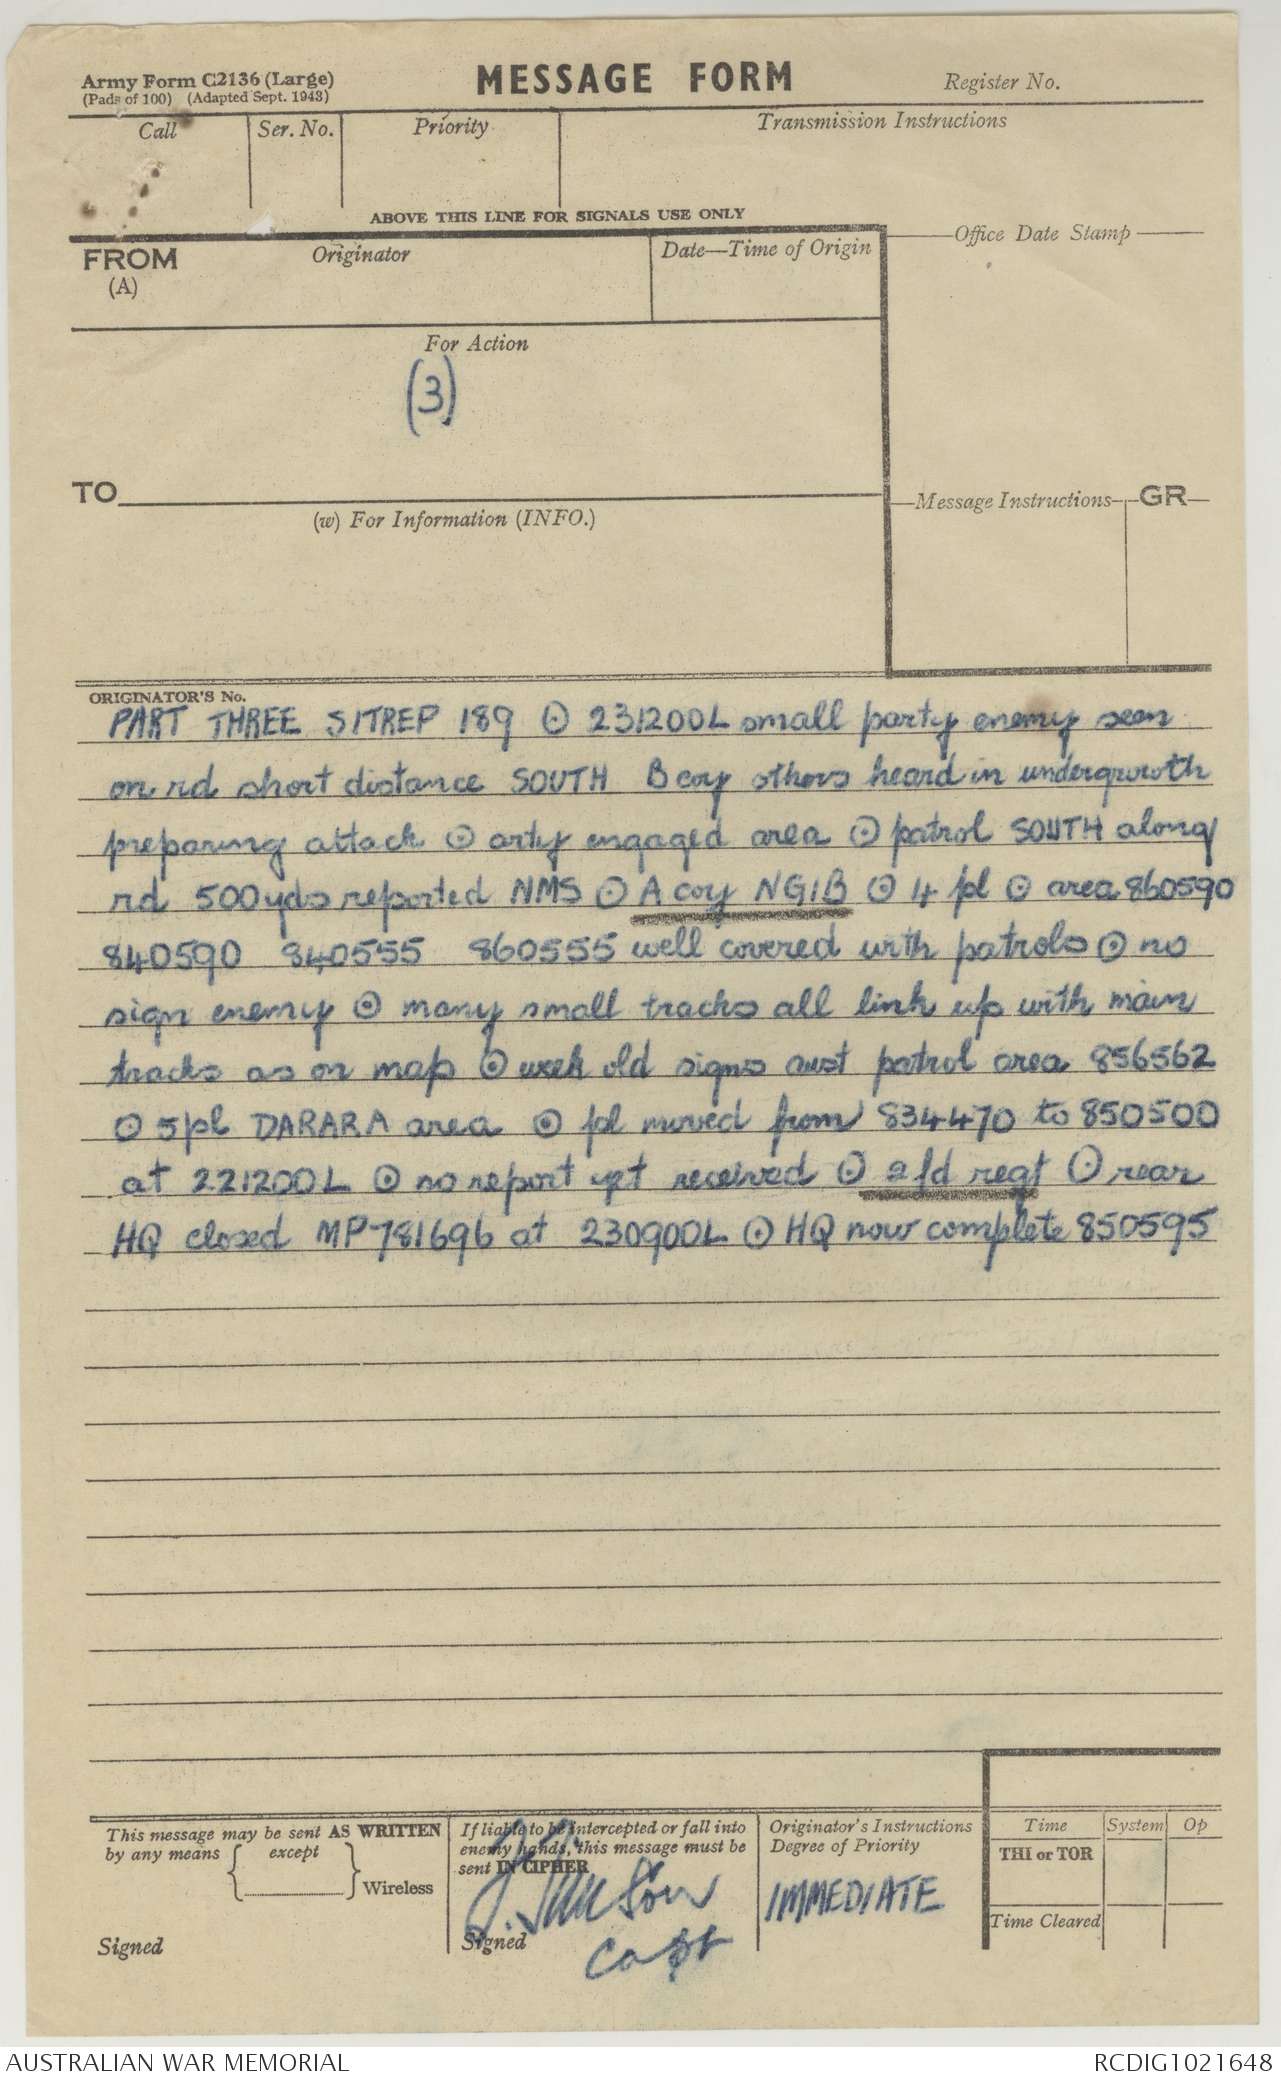 Army Form C2136 (Large)
(Pads of 100) (Adapted Sept. 1943)
MESSAGE FORM
Register No.
Call
Ser. No.
Priority
Transmission Instructions
ABOVE THIS LINE FOR SIGNALS USE ONLY
FROM
(A)
Originator
Date—Time of Origin
Office Date Stamp
For Action
(3)
TO
(w) For Information (INFO.)
Message Instructions
GR
ORIGINATOR'S No.
PART THREE SITREP 189 ⊙ 231200L small party enemy seen
on rd short distance SOUTH B coy others heard in undergrowth
preparing attack ⊙ arty engaged area ⊙ patrol SOUTH along
rd 500yds reported NMS ⊙ A coy NGIB ⊙ 4 pl ⊙ area 860590
840590 840555 860555 well covered with patrols ⊙ no
sign enemy ⊙ many small tracks all link up with main
tracks as on map ⊙ week old signs aust patrol area 856562
⊙ 5 pl DARARA area ⊙ pl moved from 834470 to 850500
at 221200L ⊙ no report yet received ⊙ 2 fd regt ⊙ rear
HQ closed MP 781696 at 230900L ⊙ HQ now complete 850595
This message may be sent AS WRITTEN
by any means { except } Wireless
Signed
If liable to be intercepted or fall into
enemy hands, this message must be
sent IN CIPHER
Signed
Capt
Originator's Instructions
Degree of Priority
IMMEDIATE
Time
System
Op
THI or TOR
Time Cleared
AUSTRALIAN WAR MEMORIAL
RCDIG1021648